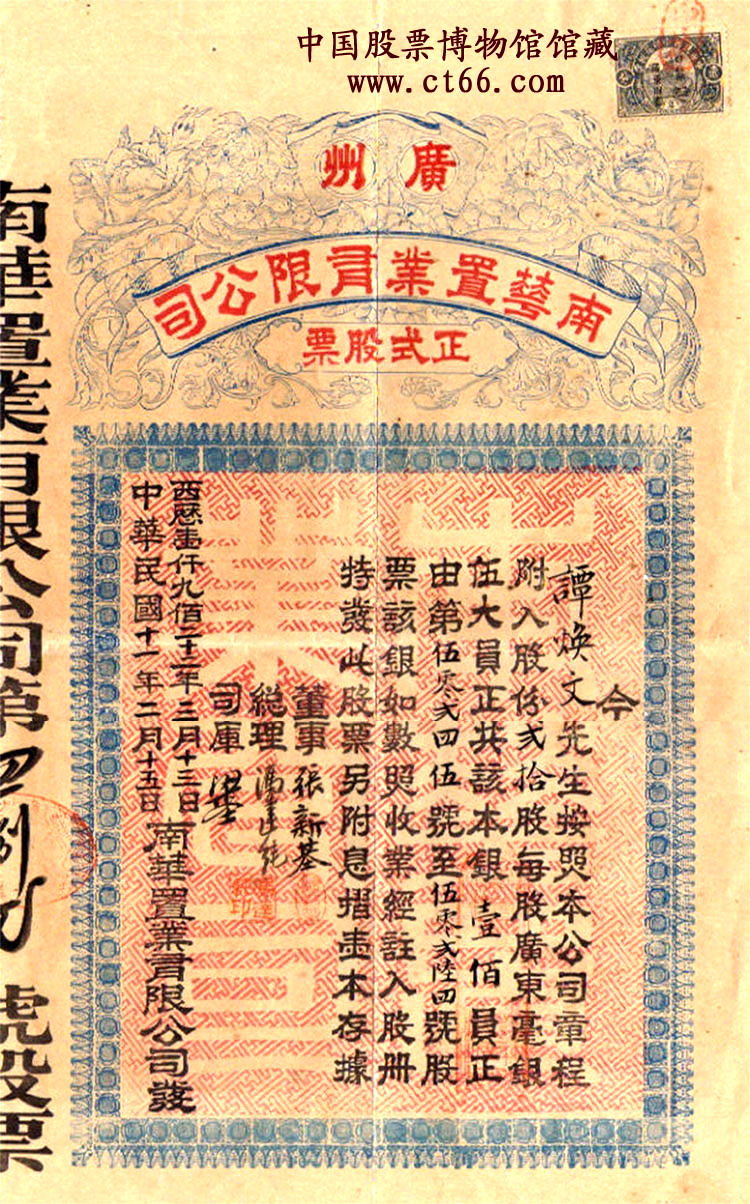 中国股票博物馆馆藏
www.ct66.com
廣州
南華置業有限公司
正式股票
今
譚煥文先生按照本公司章程
附入股份弍拾股每股廣東毫銀
伍大員正共該本銀壹佰員正
由第伍零弍四伍號至伍零弍陸四號股
票該銀如數照收業經註入股册
特發此股票另附息摺壹本存據
董事張新基
総理
司庫
西歷壹仟九佰二十二年三月十三日
中華民國十一年二月十五日
南華置業有限公司發
南華置業有限公司第
號股票